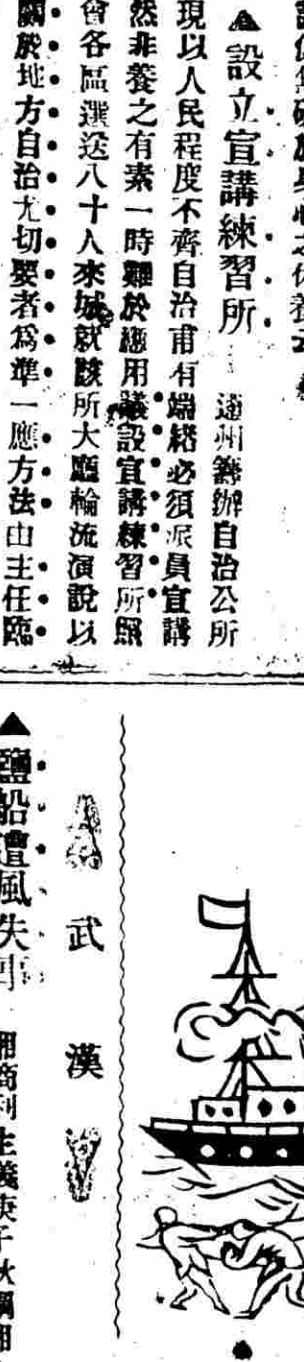 ▲設立宣講練習所　通州籌辦自治公所
現以人民程度不齊自治甫有端緒必須派員宣講
然非養之有素一時難於應用議設宣講練習所照
會各區選送八十人來城就該所大廳輪流演說以
關於地方自治尤切要者爲準一應方法由主任臨
武漢
▲鹽船遭風失事　湘商利生義庚子秋綱湘